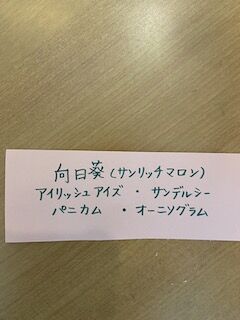 向日葵(サンリッチマロン)
アイリッシュアイズ・サンデルシー
パニカム ・オーニソグラム